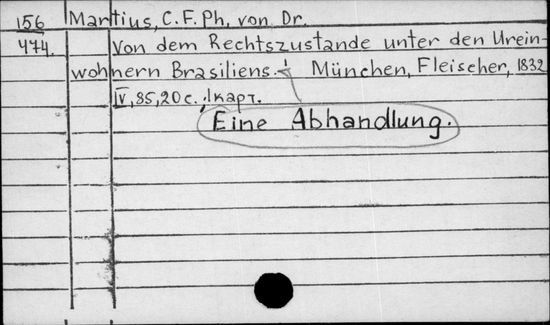 156 Martius, C. F. Ph. von Dr.
474. Von dem Rechtszustande unter den Urein-
wohnern Brasiliens. München, Fleischer, 1832
IV, 85, 20 с., 1 карт.
Eine Abhandlung.